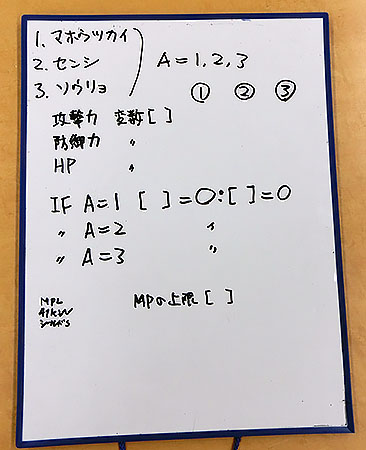 1. マホウツカイ
2. センシ
3. ソウリョ
A=1,2,3
① ② ③
攻撃力 変数[ ]
防御力 〃
HP 〃
IF A=1 [ ]=0:[ ]=0
〃 A=2 〃
〃 A=3 〃
MPの上限[ ]
MPL